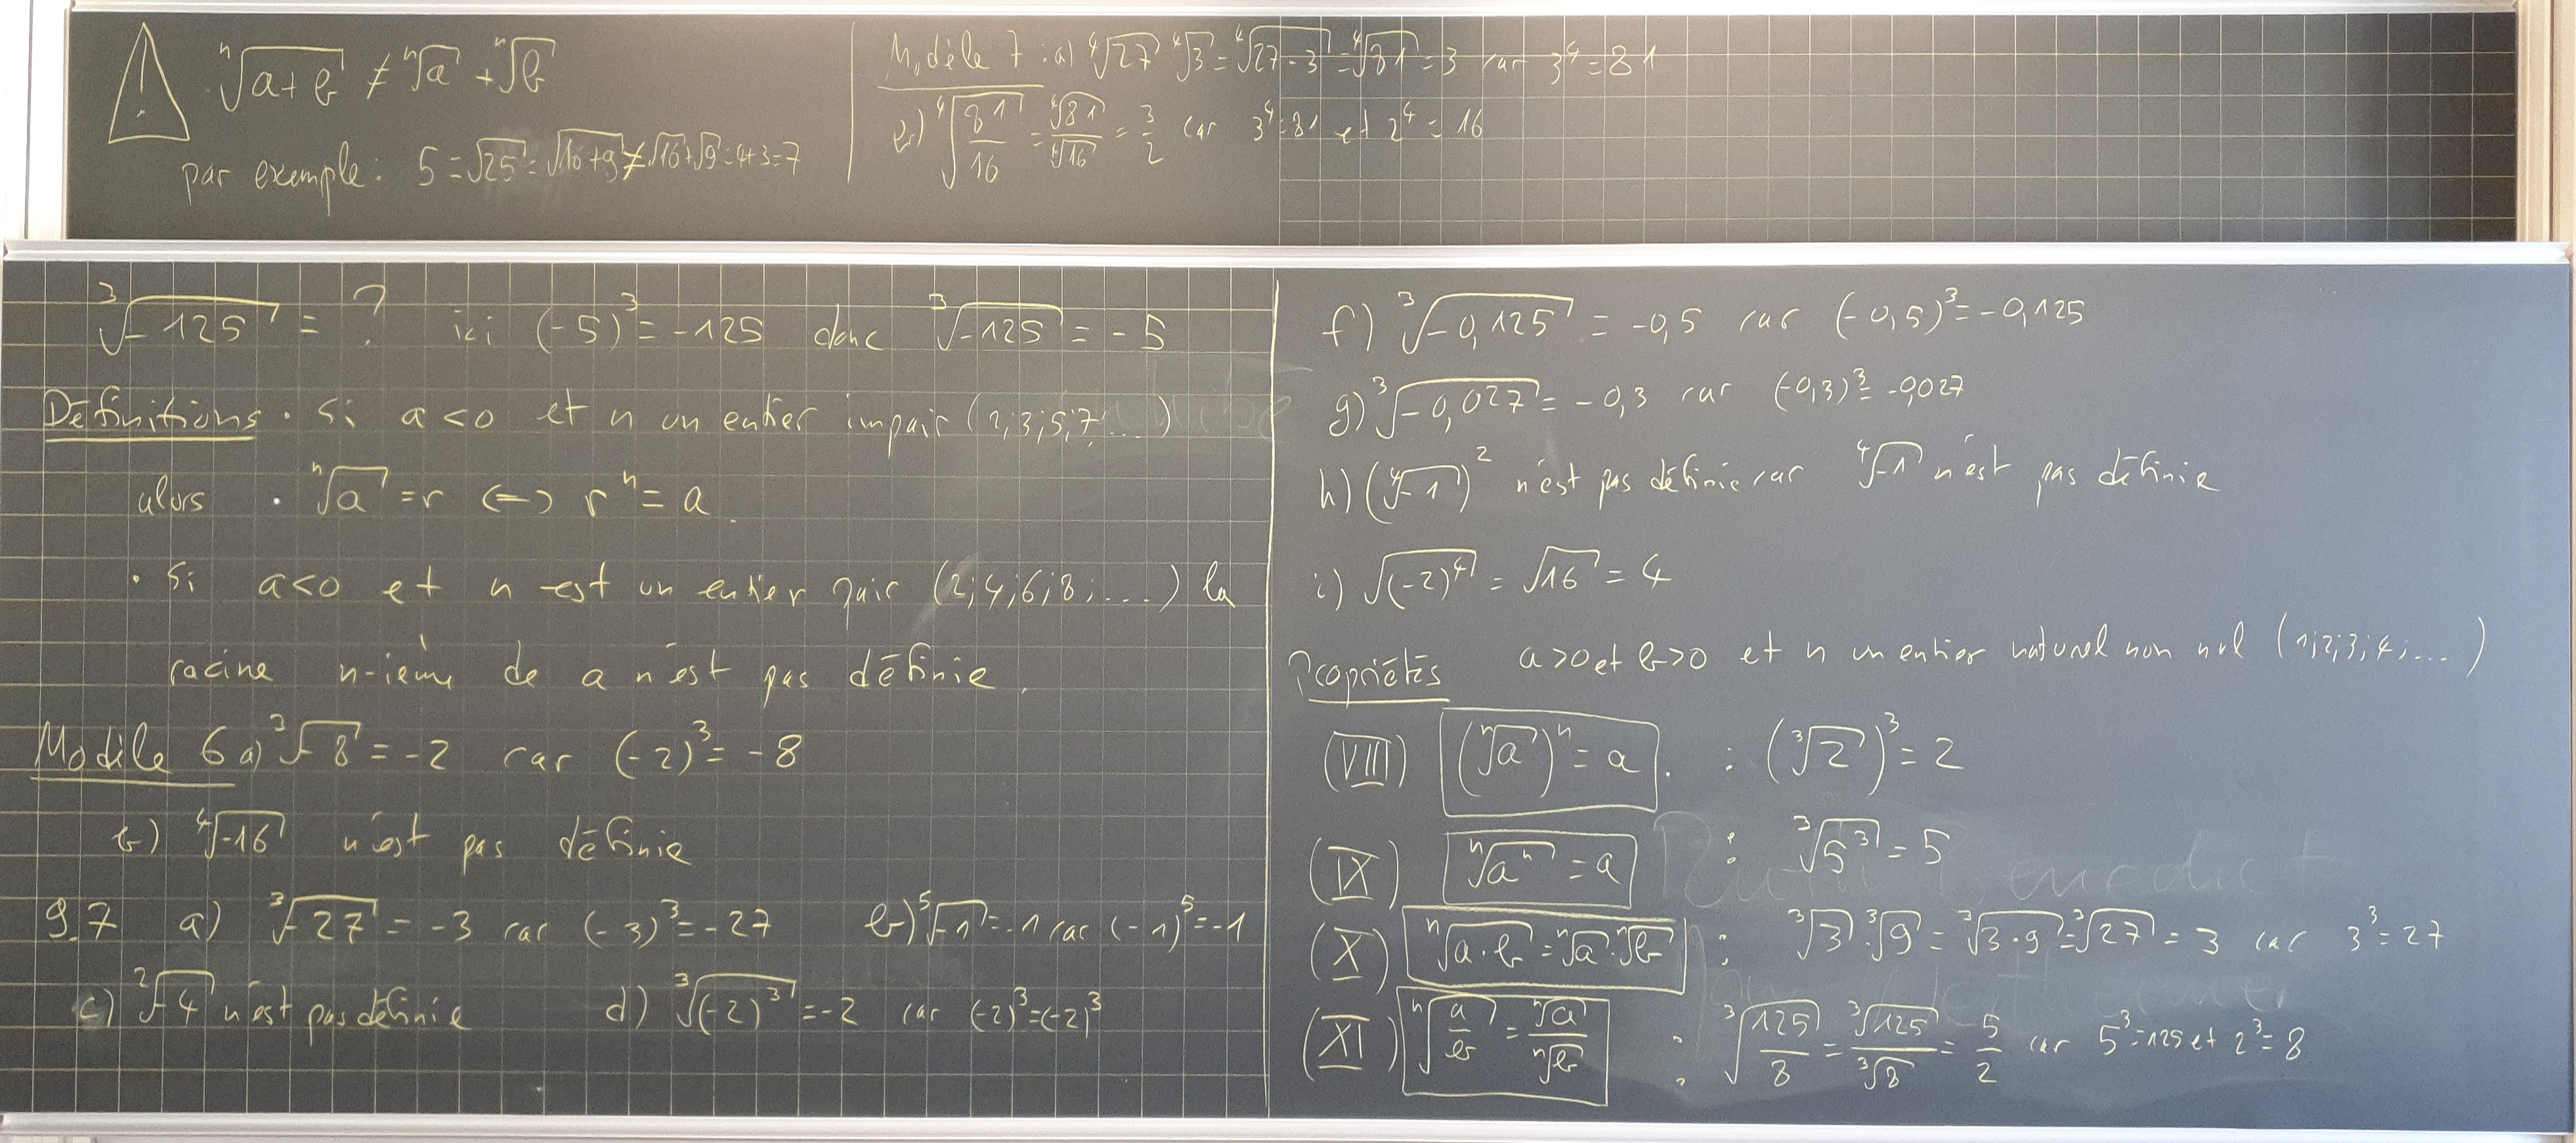 ⁿ√(a+b) ≠ ⁿ√a + ⁿ√b
par exemple : 5 = √25 = √(16+9) ≠ √16+√9 = 4+3 = 7
Modèle 7 : a) ⁴√27 · ⁴√3 = ⁴√(27·3) = ⁴√81 = 3 car 3⁴ = 81
b) ⁴√(81/16) = ⁴√81/⁴√16 = 3/2 car 3⁴ = 81 et 2⁴ = 16
³√-125 = ? ici (-5)³ = -125 donc ³√-125 = -5
Définitions · Si a < 0 et n un entier impair (1;3;5;7...)
alors · ⁿ√a = r ⟺ rⁿ = a.
· Si a<0 et n est un entier pair (2;4;6;8;...) la
racine n-ième de a n'est pas définie.
Modèle 6 a) ³√-8 = -2 car (-2)³ = -8
b) ⁴√-16 n'est pas définie
9.7 a) ³√-27 = -3 car (-3)³ = -27 b) ⁵√-1 = -1 car (-1)⁵ = -1
c) ²√-4 n'est pas définie d) ³√(-2)³ = -2 car (-2)³ = (-2)³
f) ³√-0,125 = -0,5 car (-0,5)³ = -0,125
g) ³√-0,027 = -0,3 car (-0,3)³ = -0,027
h) (⁴√-1)² n'est pas définie car ⁴√-1 n'est pas définie
i) √(-2)⁴ = √16 = 4
Propriétés a>0 et b>0 et n un entier naturel non nul (1;2;3;4;...)
(VIII) (ⁿ√a)ⁿ = a. : (³√2)³ = 2
(IX) ⁿ√aⁿ = a : ³√5³ = 5
(X) ⁿ√(a·b) = ⁿ√a · ⁿ√b : ³√3 · ³√9 = ³√(3·9) = ³√27 = 3 car 3³ = 27
(XI) ⁿ√(a/b) = ⁿ√a/ⁿ√b : ³√(125/8) = ³√125/³√8 = 5/2 car 5³ = 125 et 2³ = 8